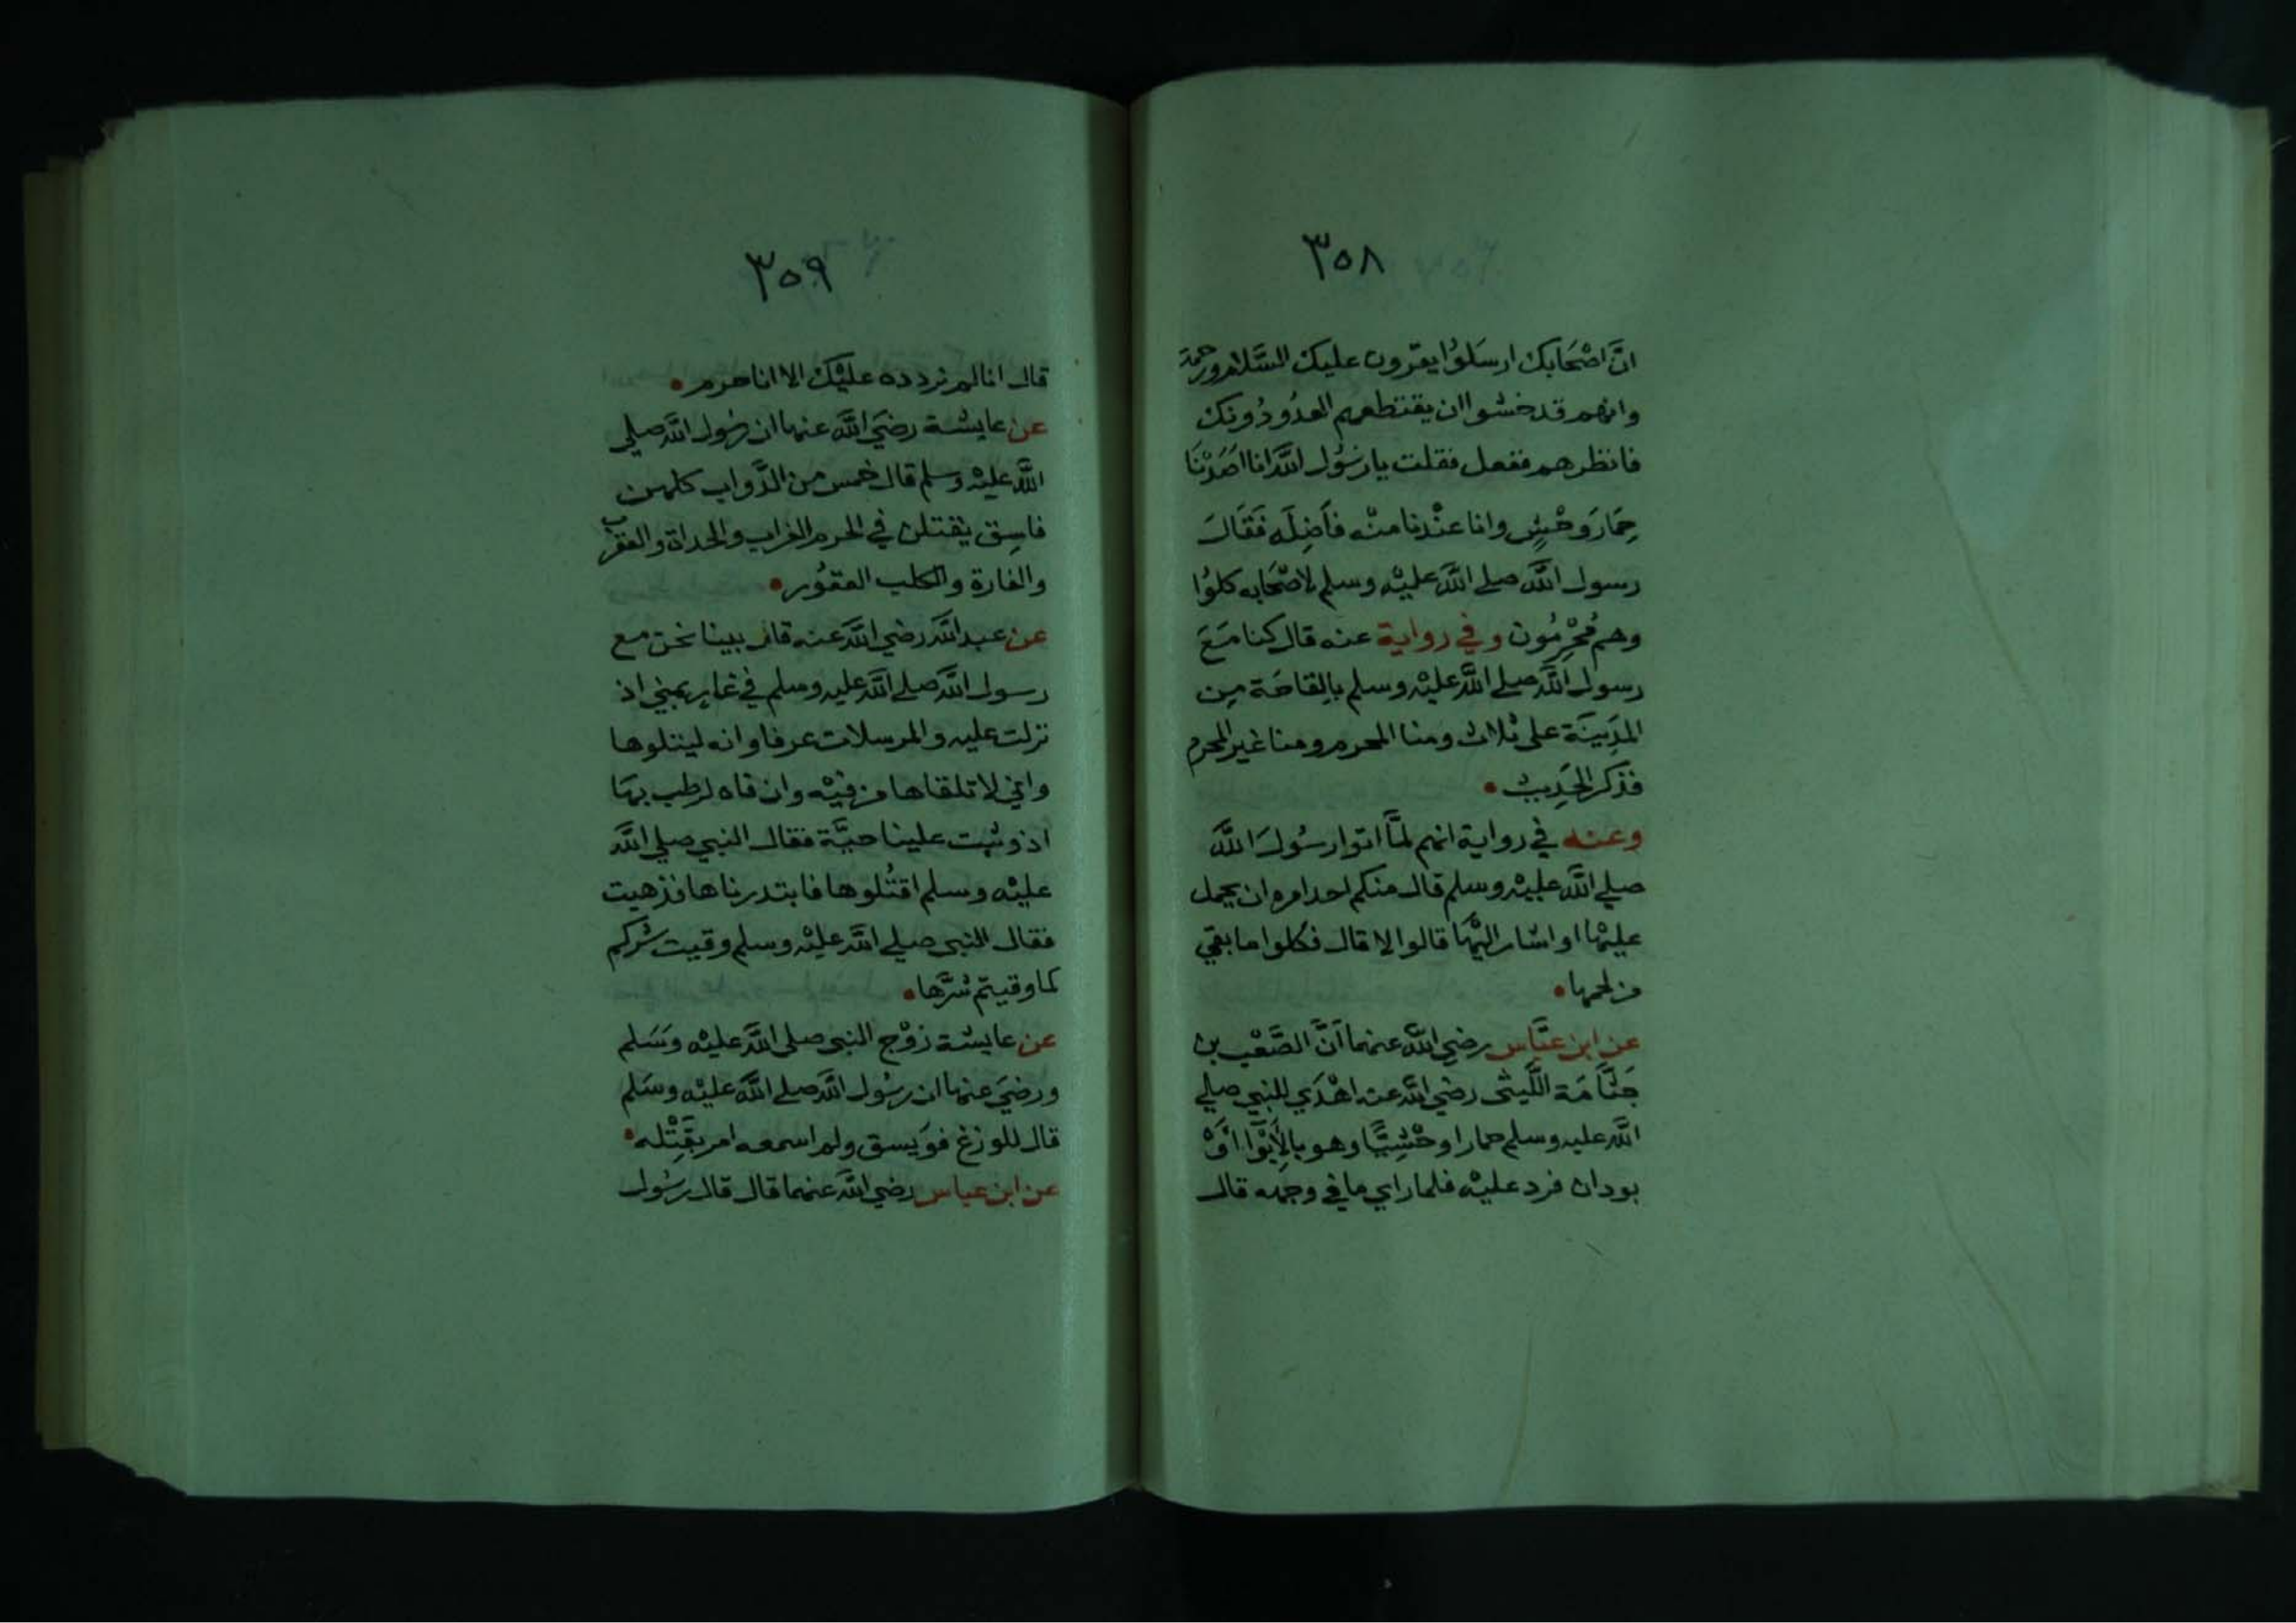 ٣٥٨
انَّ اصْحَابك ارسَلوُا يقرون عليك السَّلام ورحمة
وانهم قد خشوا ان يقتطعهم العدُو دُونك
فانظرهم ففعل فقلت يا رسُول اللَّه انا اصَّدْنَا
حِمَارَ وحْشٍ وانا عنْدنا منْه فاَضِلَه فَقَالَ
رسول اللَّه صلے اللَّه عليْه وسلم لاصْحَابه كلوُا
وهم مُحْرِمُون وفي رواية عنه قال كنا مَعَ
رسول اللَّه صلے اللَّه عليْه وسلم بالقاحَة مِن
المدِينَة على ثلاث ومنا المحرم ومنا غير المحرم
فذكر الحَدِيث
وعنه في رواية انهم لمَّا اتوا رسُولَ اللَّه
صلے اللَّه عليْه وسلم قال منكم احد امره ان يحمل
عليْها او اشار اليْهَا قالوا لا قال فكلوا ما بقي
من لحمها
عن ابن عبَّاس رضي اللَّه عنهما اَنَّ الصَّعْب بن
جَثَّامَة اللَّيثى رضي اللَّه عنه اهْدَي للنبي صلے
اللَّه عليه وسلم حمارا وحْشِيًّا وهو بالاَبْوَا اَوْ
بودان فرد عليْه فلما راي ما في وجهه قال
٣٥٩
قال انا لم نردده عليْك الا انا حرم
عن عايشة رضيَ اللَّه عنها ان رسُول اللَّه صلى
اللَّه عليْه وسلم قال خمس من الدَّواب كلهن
فاسِق يقتلن في الحرم الغراب والحداة والعقرب
والفارة والكلب العقوُر
عن عبد اللَّه رضي اللَّه عنه قال بينا نحن مع
رسول اللَّه صلے اللَّه عليه وسلم في غار بمني اذ
نزلت عليه والمرسلات عرفا وانه ليتلوها
واني لا تلقاها من فيْه وان فاه لرطب بهَا
اذ وثبت علينا حيَّة فقال النبي صلي اللَّه
عليْه وسلم اقتُلوها فابتدرناها فذهبت
فقال النبى صلے اللَّه عليْه وسلم وقيت شركم
كما وقيتم شرَّها
عن عايشة زوْج النبى صلى اللَّه عليْه وسَلم
ورضيَ عنها ان رسُول اللَّه صلے اللَّه عليْه وسَلم
قال للوزغ فوَيسق ولم اسمعه امر بقَتْله
عن ابن عباس رضي اللَّه عنهما قال قال رسُول